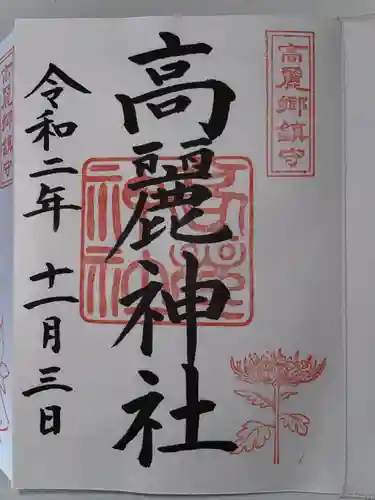 高麗郷鎮守
高麗神社
令和二年 十一月三日
高麗神社
高麗郷鎮守